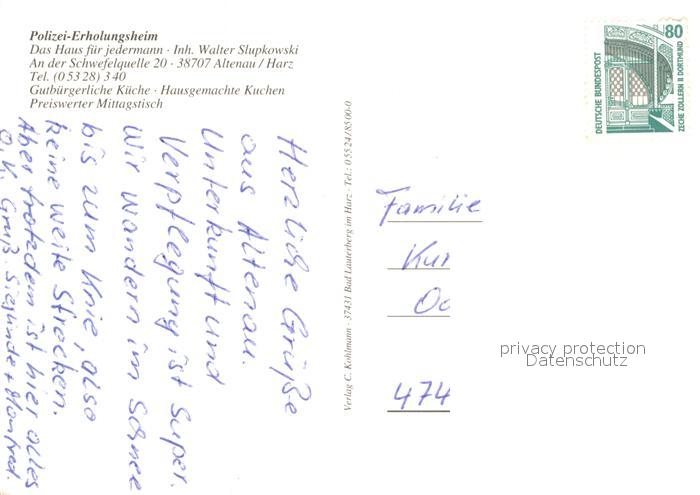 Polizei-Erholungsheim
Das Haus für jedermann · Inh. Walter Slupkowski
An der Schwefelquelle 20 · 38707 Altenau / Harz
Tel. (0 53 28) 3 40
Gutbürgerliche Küche · Hausgemachte Kuchen
Preiswerter Mittagstisch
Herzliche Grüße
aus Altenau.
Unterkunft und
Verpflegung ist Super.
Wir wandern im Schnee
bis zum Knie, also
keine weite Strecken.
Aber trotzdem ist hier alles
O.K. Gruß Sieglinde + Manfred.
Verlag C. Kohlmann · 37431 Bad Lauterberg im Harz · Tel.: 0 55 24/85 00-0
80
DEUTSCHE BUNDESPOST
ZECHE ZOLLERN II DORTMUND
Familie
Kur
Oo
474
privacy protection
Datenschutz